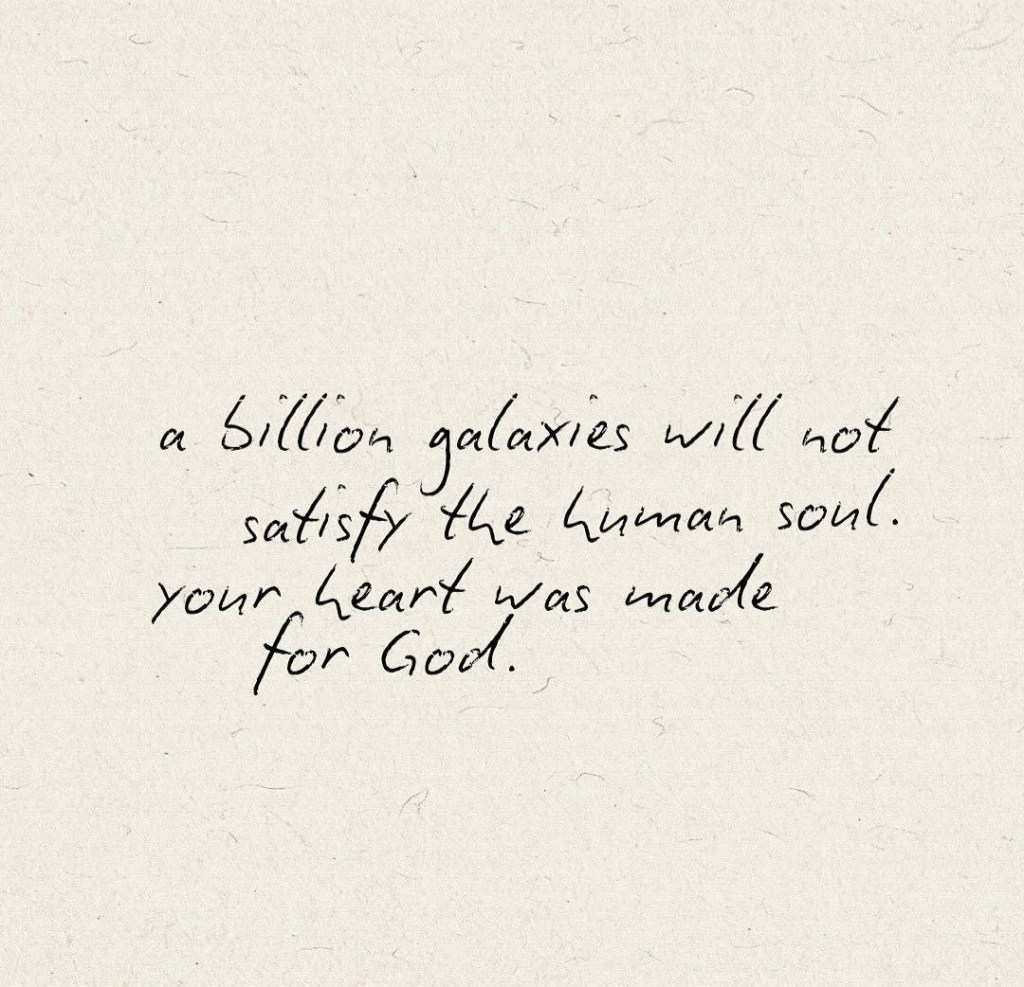 a billion galaxies will not
satisfy the human soul.
your heart was made
for God.